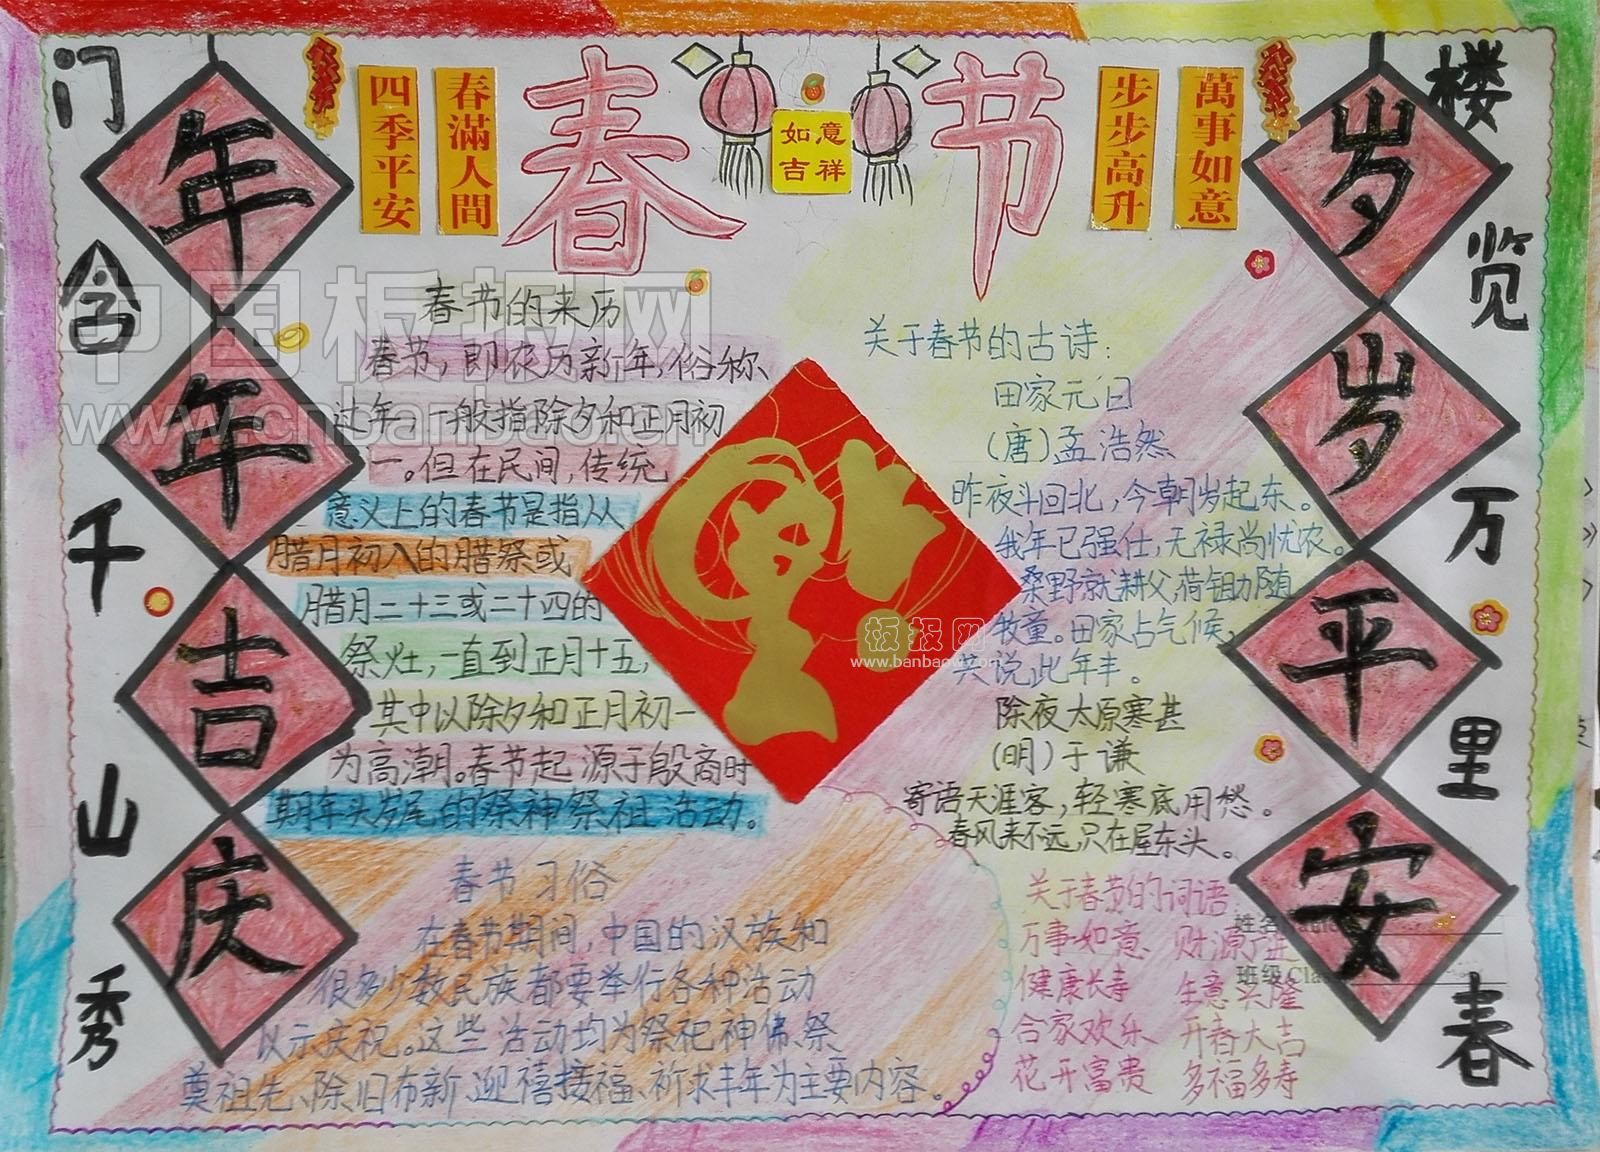 春节
门含千山秀
楼览万里春
年年吉庆
岁岁平安
四季平安
春滿人間
如意
吉祥
步步高升
萬事如意
春节的来历
春节,即农历新年,俗称
过年,一般指除夕和正月初
一。但在民间,传统
意义上的春节是指从
腊月初八的腊祭或
腊月二十三或二十四的
祭灶,一直到正月十五,
其中以除夕和正月初一
为高潮。春节起源于殷商时
期年头岁尾的祭神祭祖活动。
春节习俗
在春节期间,中国的汉族和
很多少数民族都要举行各种活动
以示庆祝。这些活动均为祭祀神佛、祭
奠祖先、除旧布新、迎禧接福、祈求丰年为主要内容。
关于春节的古诗:
田家元日
(唐)孟浩然
昨夜斗回北,今朝岁起东。
我年已强仕,无禄尚忧农。
桑野就耕父,荷锄随
牧童。田家占气候,
共说此年丰。
除夜太原寒甚
(明)于谦
寄语天涯客,轻寒底用愁。
春风来不远,只在屋东头。
关于春节的词语
万事如意、财源广进
健康长寿 生意兴隆
合家欢乐 开春大吉
花开富贵 多福多寿
姓名
班级Cla
中国板报网
www.cnbanbao.cn
板报网
www.banbaow